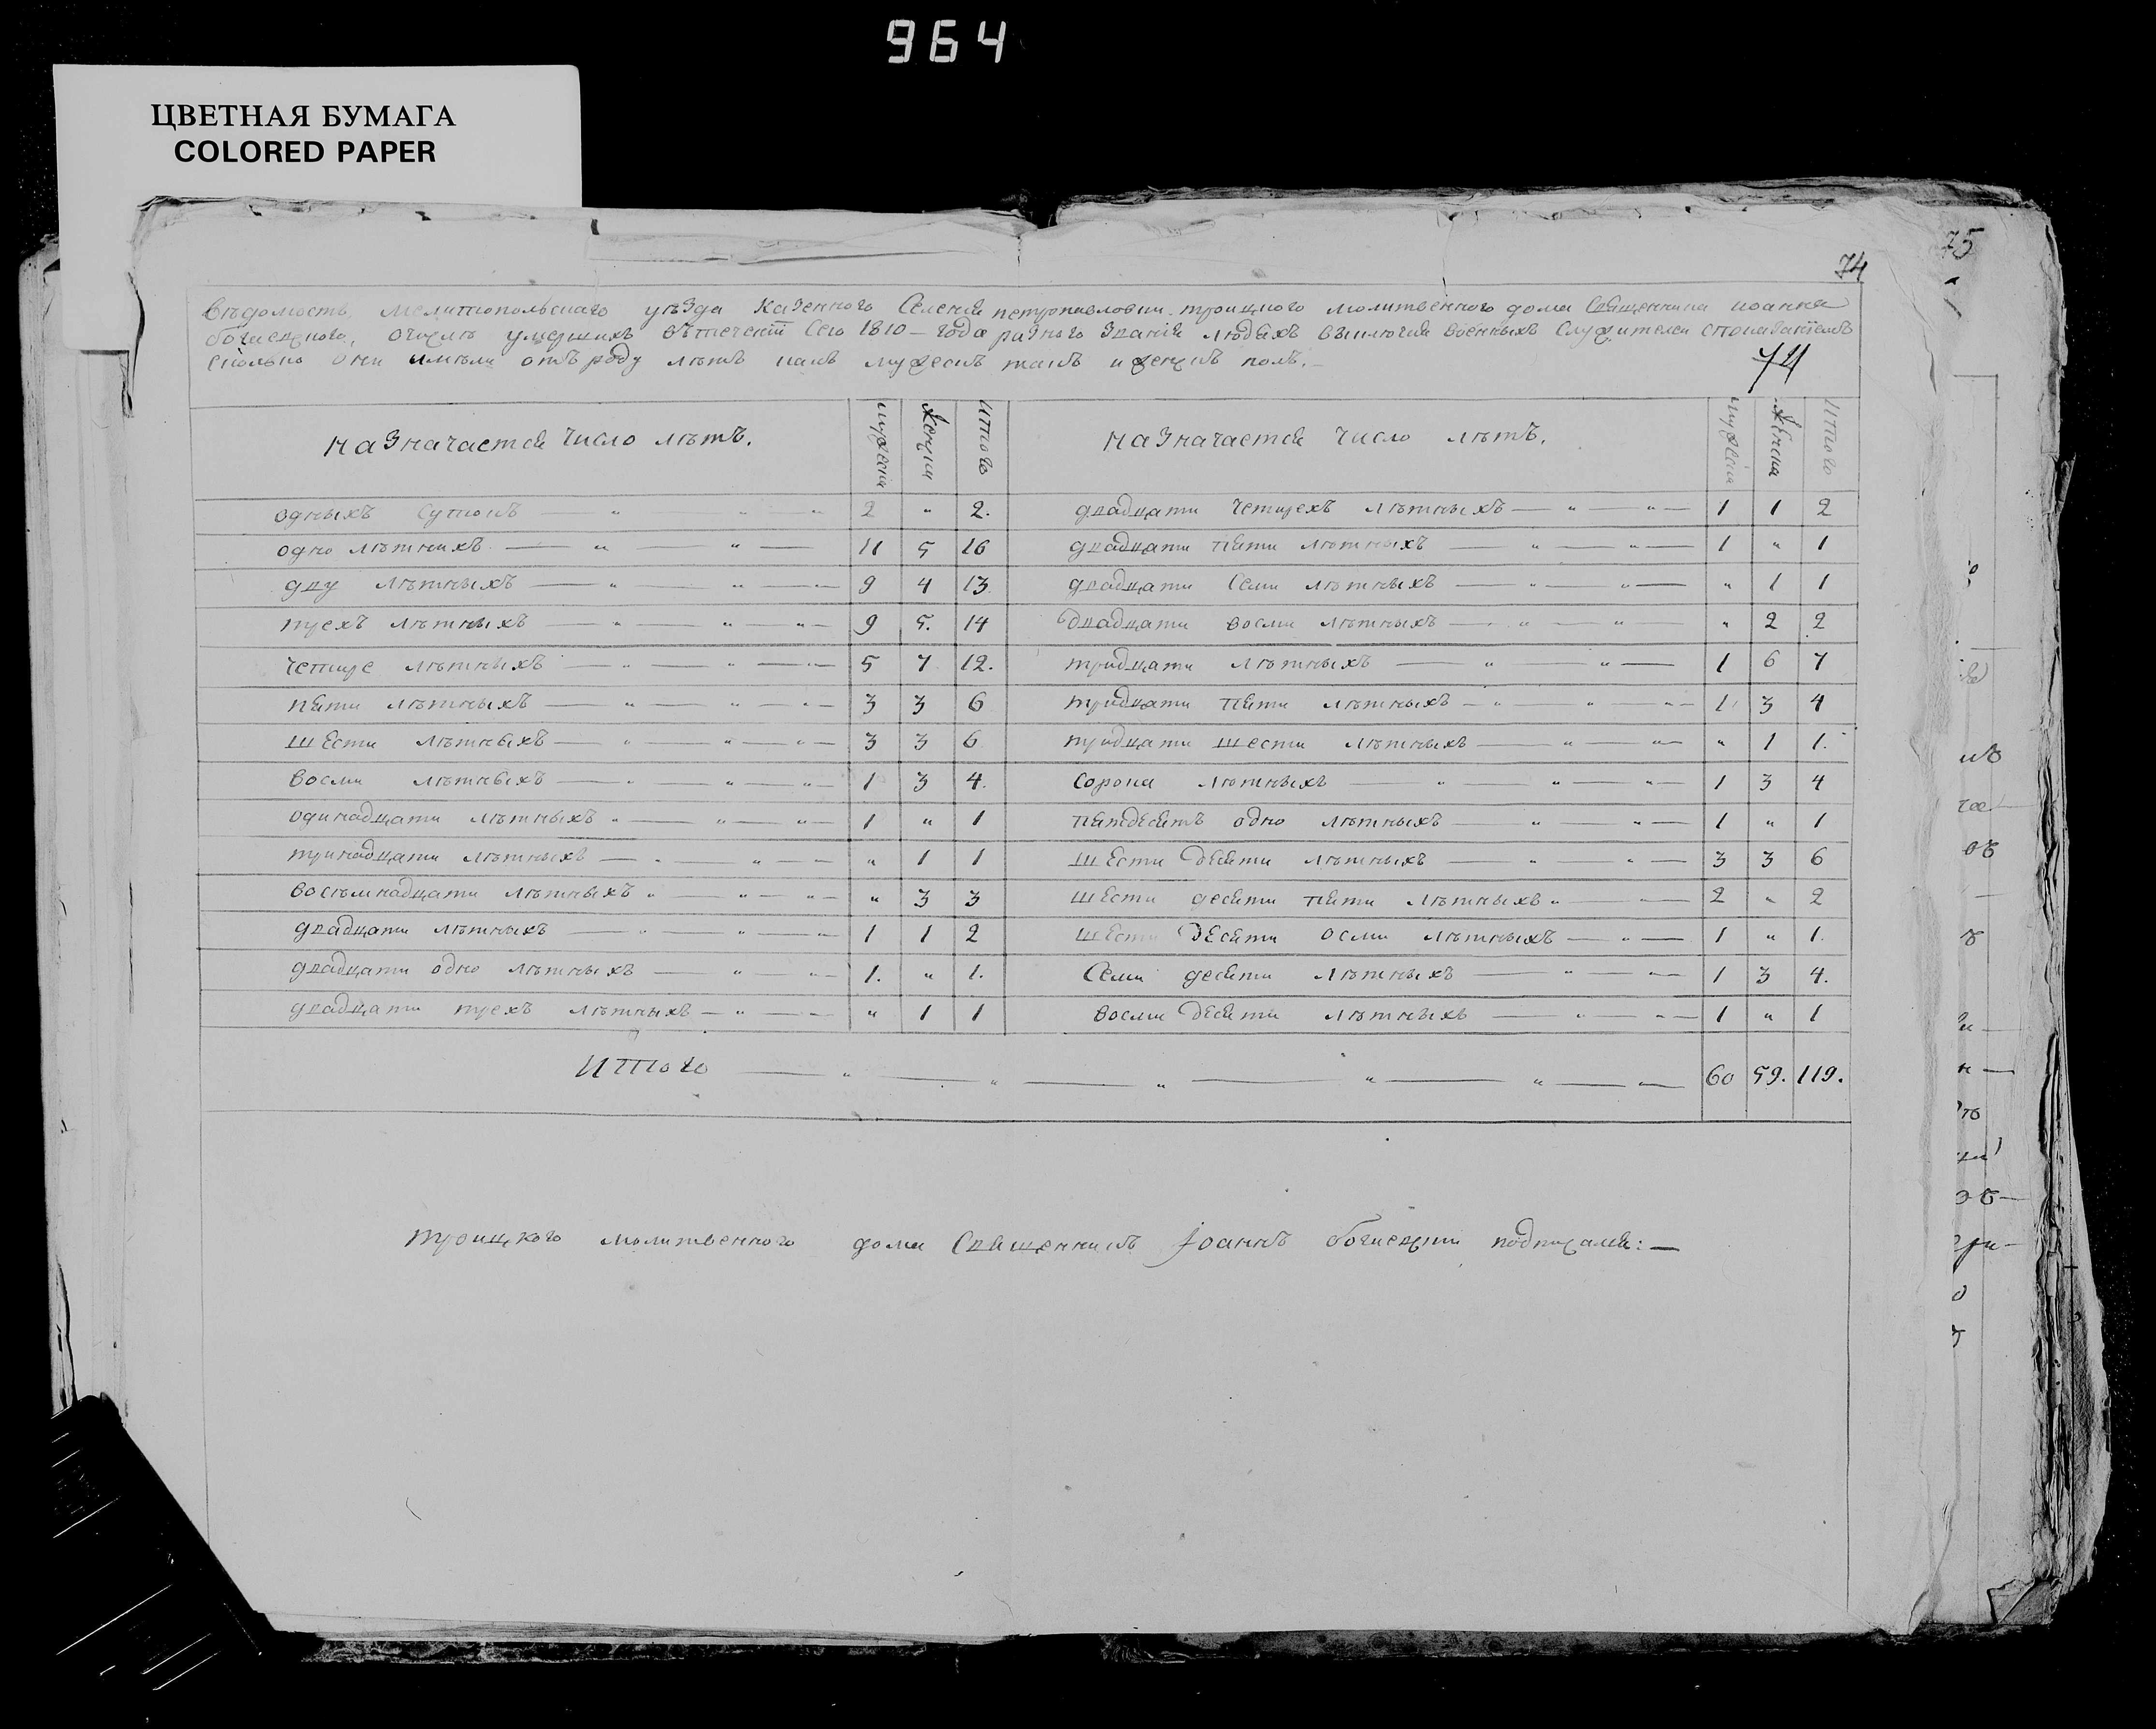 964
ЦВЕТНАЯ БУМАГА
COLORED PAPER
75
74
Вѣдомость, мелитопольскаго уѣзда казенного селенія петропавловки троицкого молитвенного дома священника иоанна
о числѣ умершихъ втеченіи сего 1810 года разного званія людяхъ выключая военныхъ служителей споказаніемъ
сколько они имѣли отъ роду лѣтъ какъ мужескъ такъ и женскъ полъ.
74
назначается число лѣтъ. мужеска женска итого назначается число лѣтъ. мужеска женска итого
одныхъ сутокъ — " " " 2 " 2. двадцати четырехъ лѣтныхъ — " — " — 1 1 2
одно лѣтнихъ — " — " — 11 5 16 двадцати пяти лѣтныхъ — " — " — 1 " 1
дву лѣтныхъ — " — " — " — 9 4 13 двадцати семи лѣтныхъ — " — " — " 1 1
трехъ лѣтныхъ — " — " — " — 9 5. 14 двадцати восми лѣтныхъ — " — " " 2 2
четыре лѣтныхъ — " — " — " — 5 7 12. тридцати лѣтныхъ — " — " — 1 6 7
пяти лѣтныхъ — " — " — " — 3 3 6 тридцати пяти лѣтныхъ — " — " — " — 1 3 4
шести лѣтныхъ — " — " — " — 3 3 6 тридцати шести лѣтныхъ — " — " — " 1 1.
восми лѣтныхъ — " — " — " — 1 3 4. сорока лѣтныхъ — " — " — " — 1 3 4
одинадцати лѣтныхъ " — " — " — 1 " 1 пятдесятъ одно лѣтныхъ — " — " — 1 " 1
тринадцати лѣтныхъ — " — " — " 1 1 шести десяти лѣтныхъ — " — " — 3 3 6
восемнадцати лѣтныхъ " — " — " — " 3 3 шести десяти пяти лѣтныхъ " — " — 2 " 2
двадцати лѣтныхъ — " — " — " — 1 1 2 шести десяти осми лѣтныхъ — " — 1 " 1.
двадцати одно лѣтныхъ — " — " — 1. " 1. семи десяти лѣтныхъ — " — " — 1 3 4.
двадцати трехъ лѣтныхъ — " — " — " 1 1 восми десяти лѣтныхъ — " — " — 1 " 1
Итого — " — " — " — " — " — 60 59. 119.
троицкого молитвенного дома священникъ Іоаннъ подписался: —